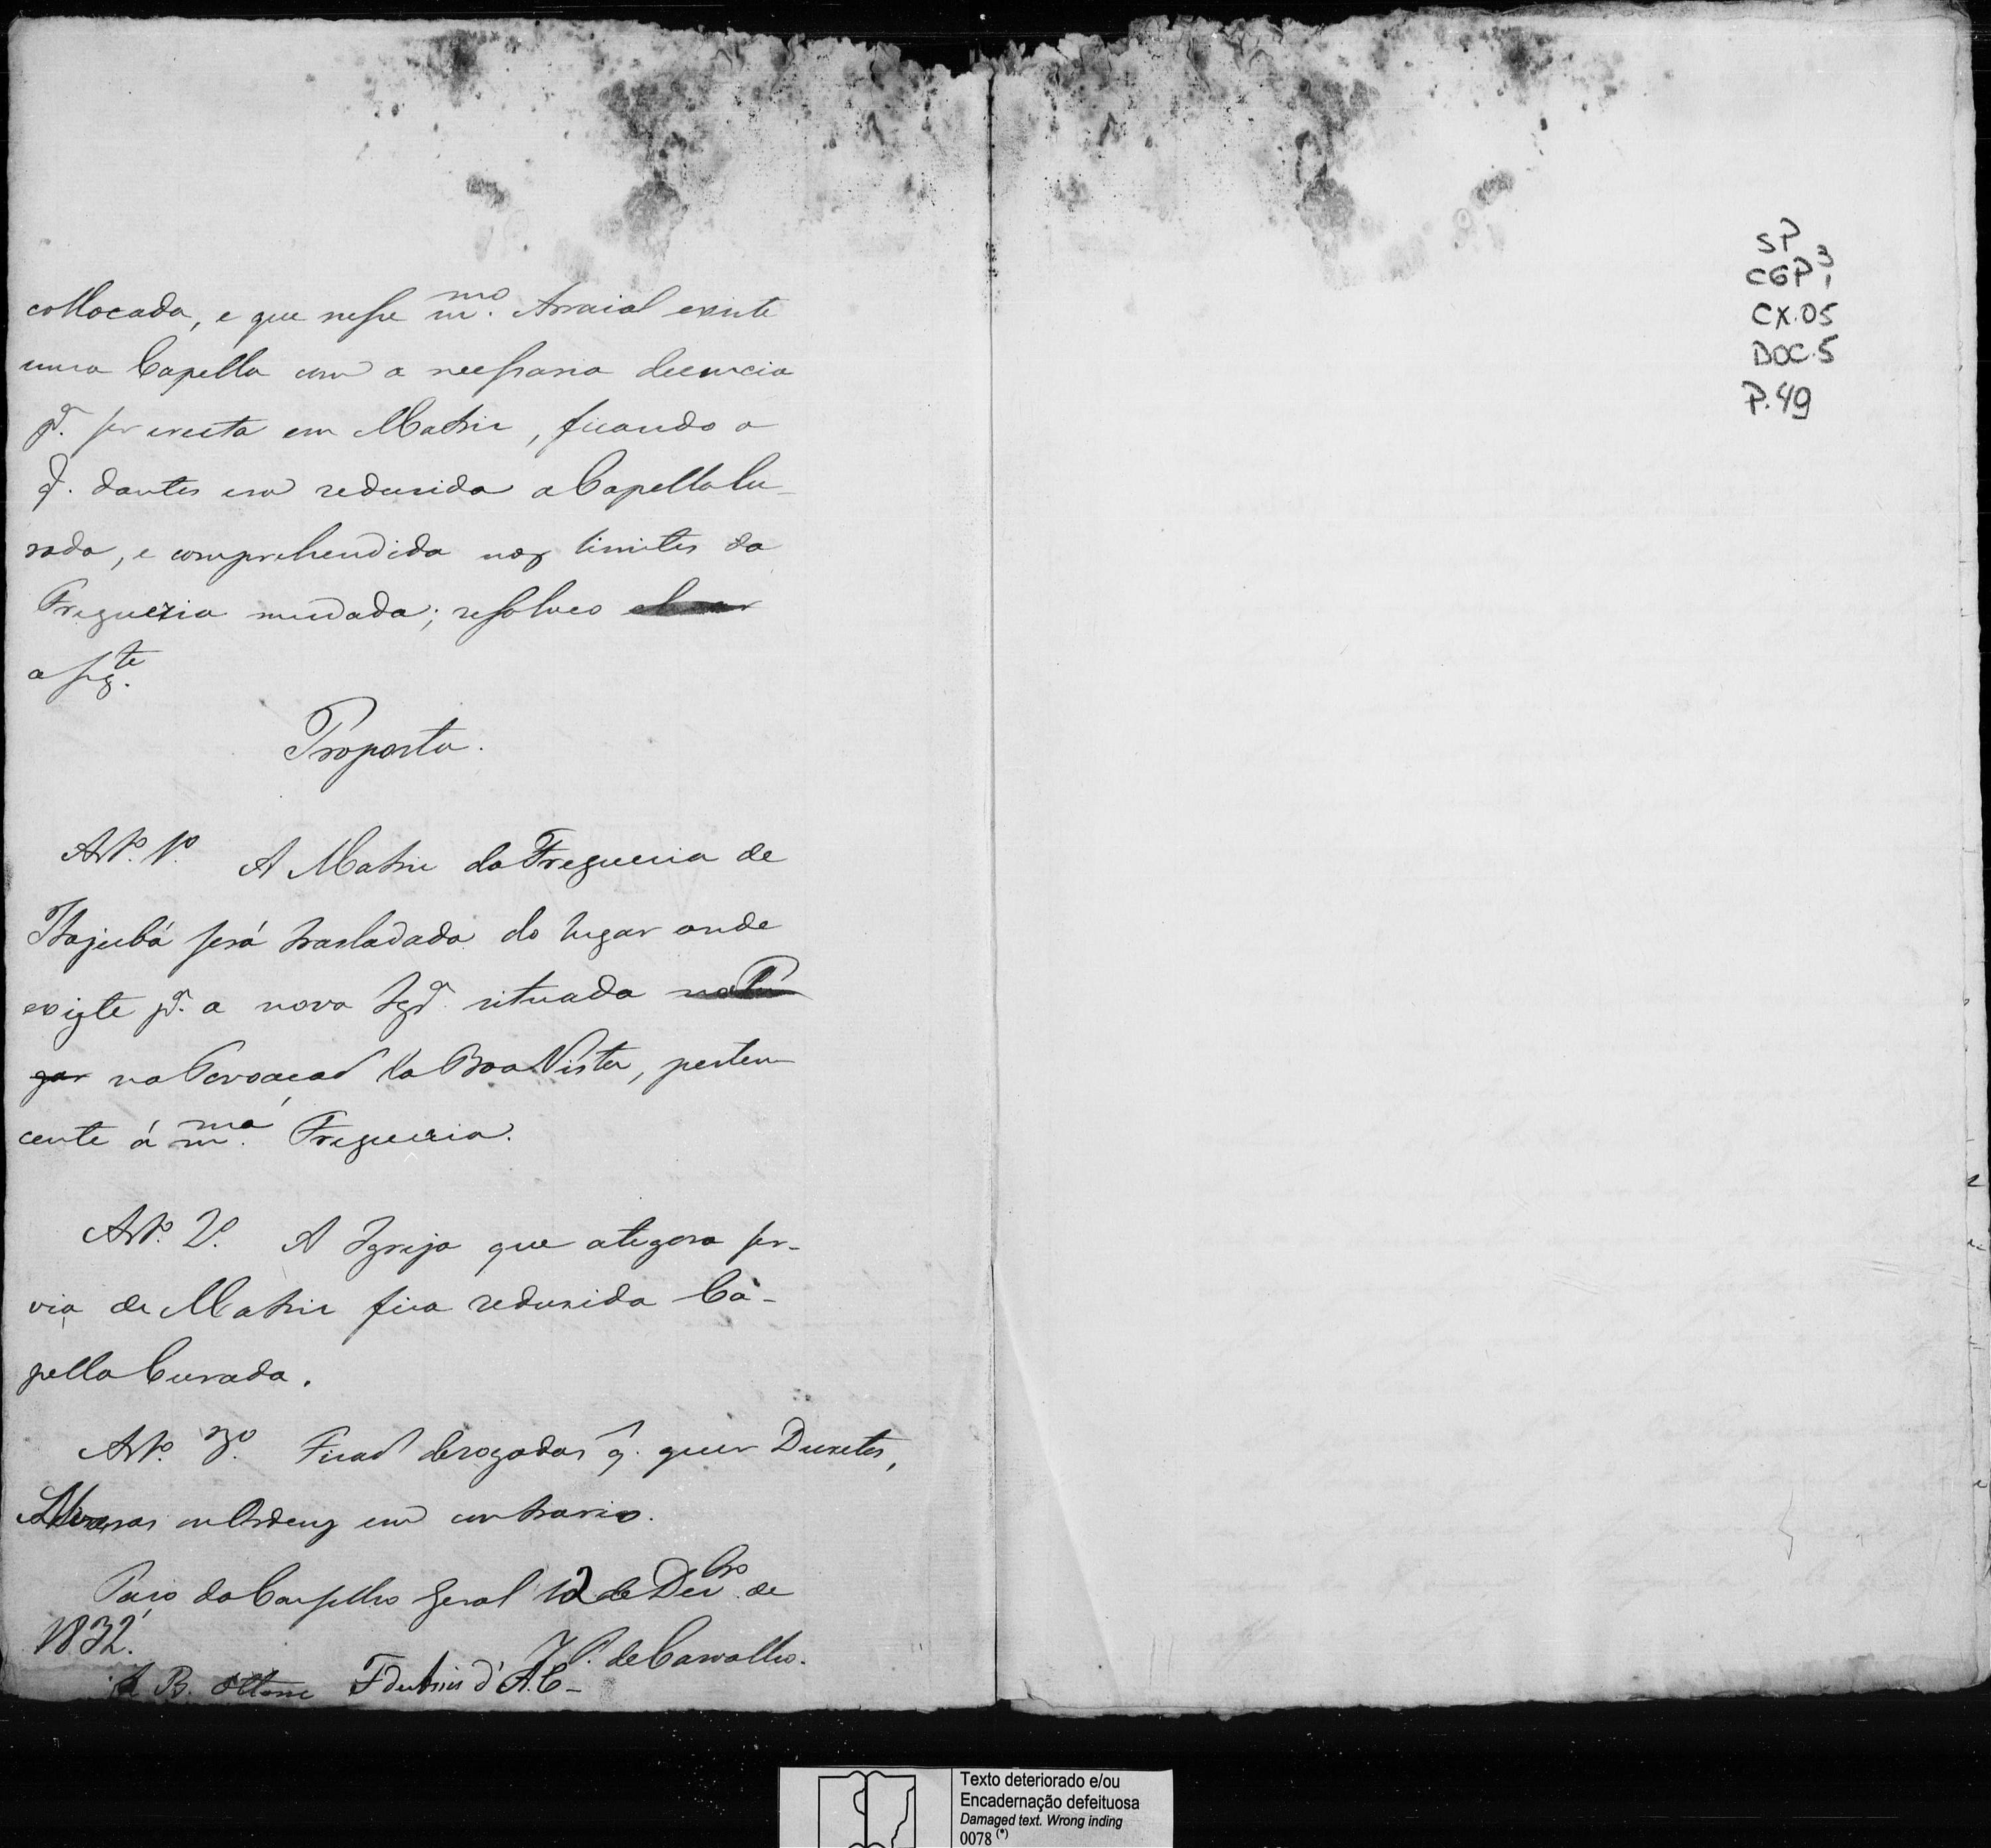 collocada, e que nesse m.mo Arraial existe
uma Capella com a necessaria decencia
p.a ser erecta em Matriz, ficando a
q. dantes era redusida a Capella Cu-
rada, e comprehendida nos limites da
Freguezia mudada; resolveo
a seg.te
Proposta.
Art.o 1.o A Matriz da Freguezia de
Itajubá será trasladada do lugar onde
existe p.a a nova Igr.a situada na Lu
gar na Povoação da Boa Vista, perten
cente á m.ma Freguezia.
Art.o 2.o A Igreja que ategora ser-
via de Matriz fica redusida Ca-
pella Curada.
Art.o 3.o Ficão derogadas q. quer Decretos,
Alvaras ou Ordens em contrario.
Paço do Conselho Geral 12 de Dez.bro de
1832.
J. P. de Carvalho.
B. Ottoni F d'Assis d' A. C-
SP
CGP 3,1
CX.05
DOC.5
P.49
Texto deteriorado e/ou
Encadernação defeituosa
Damaged text. Wrong inding
0078 (*)